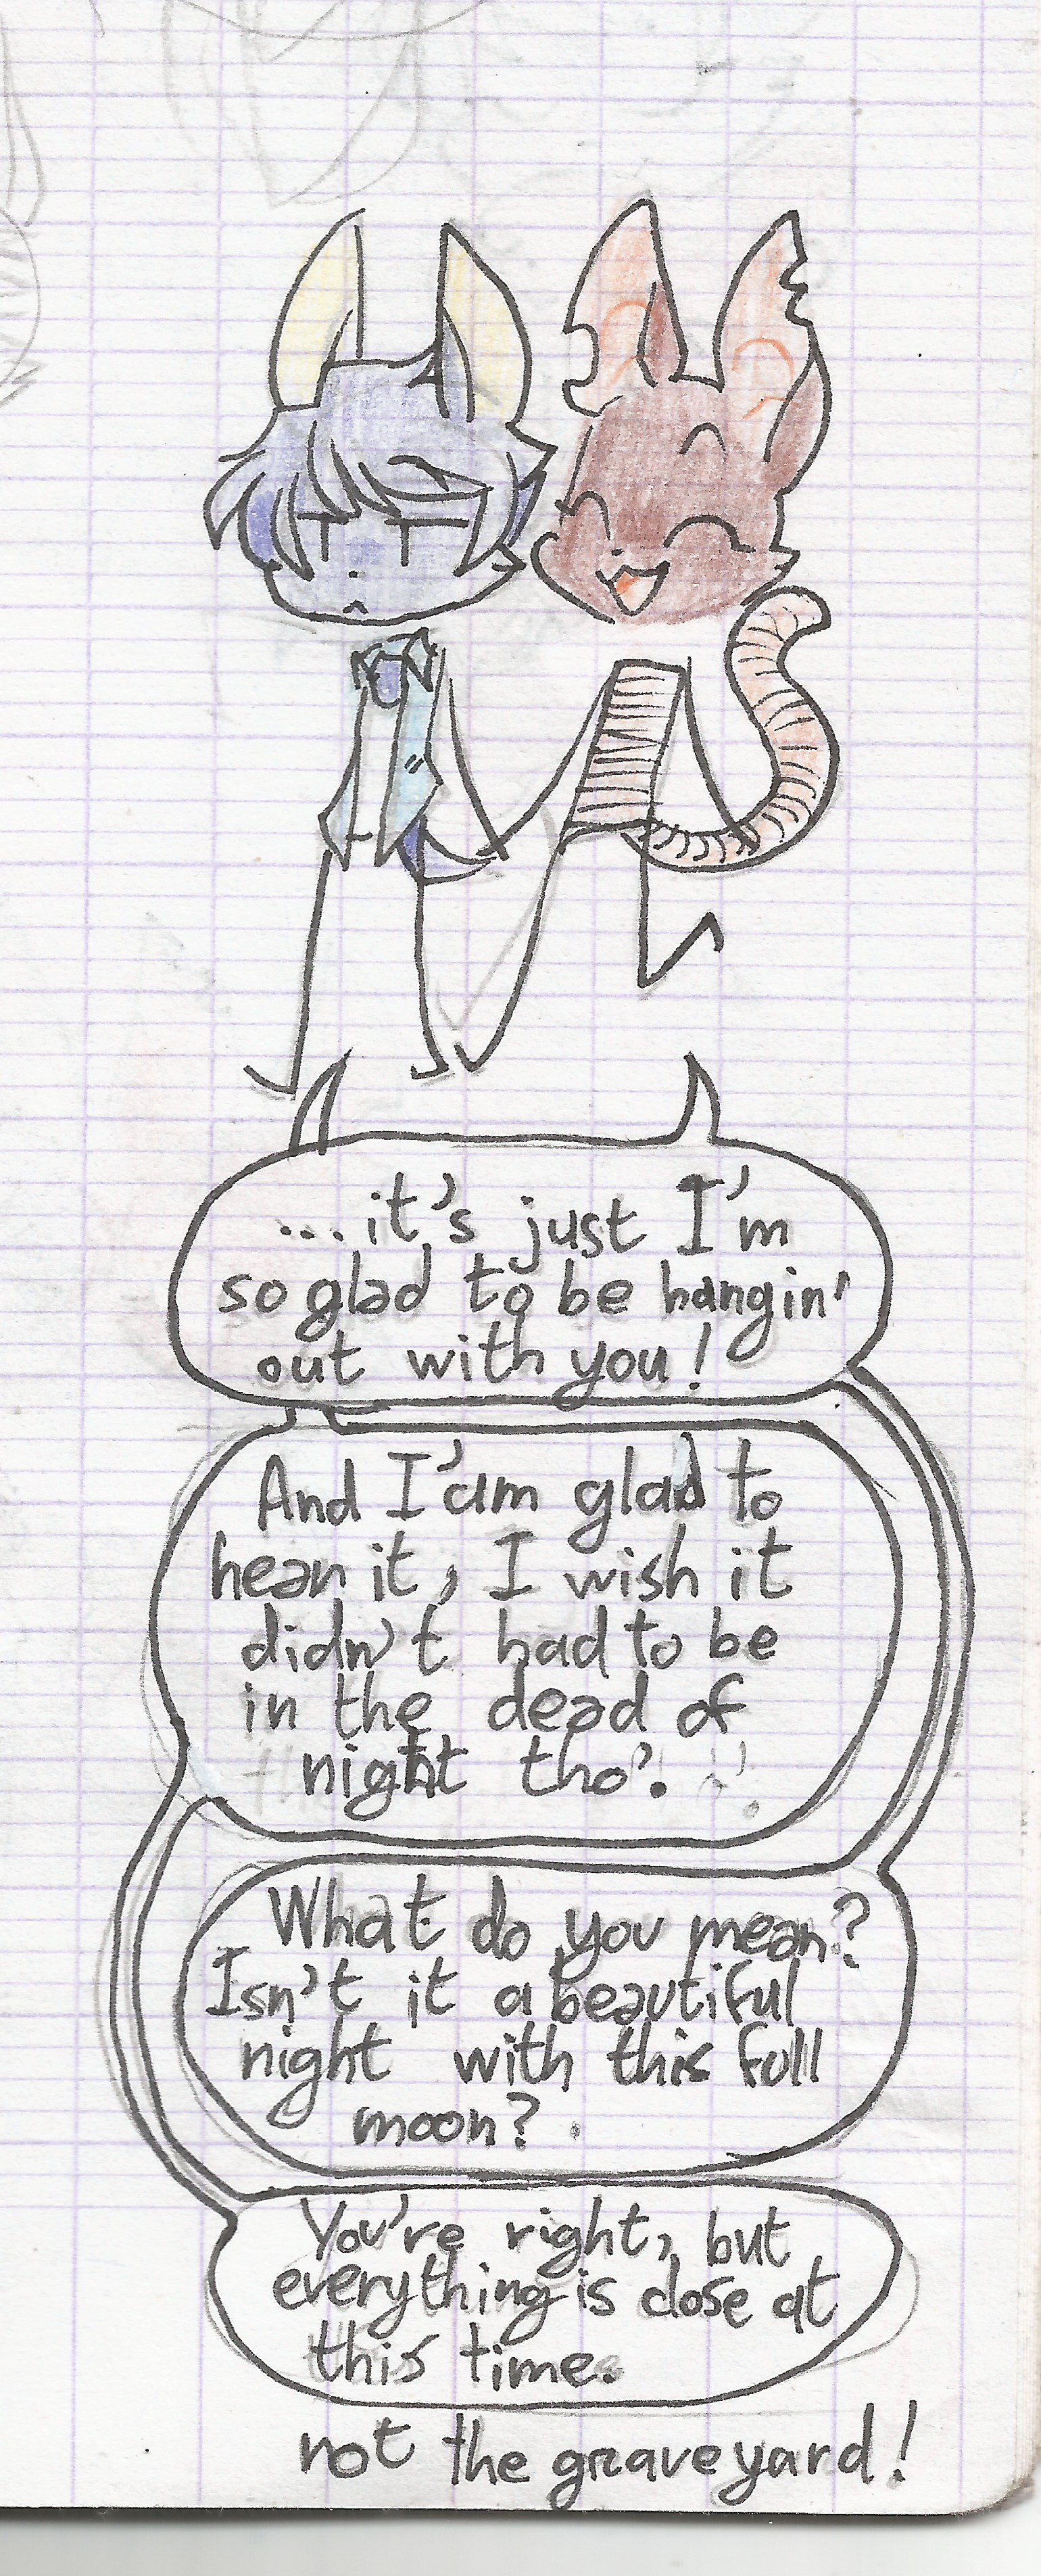 ...it's just I'm
so glad to be hangin'
out with you!
And I'am glad to
hear it, I wish it
didn't had to be
in the dead of
night tho'.
What do you mean?
Isn't it a beautiful
night with this full
moon?
You're right, but
everything is close at
this time.
not the graveyard!